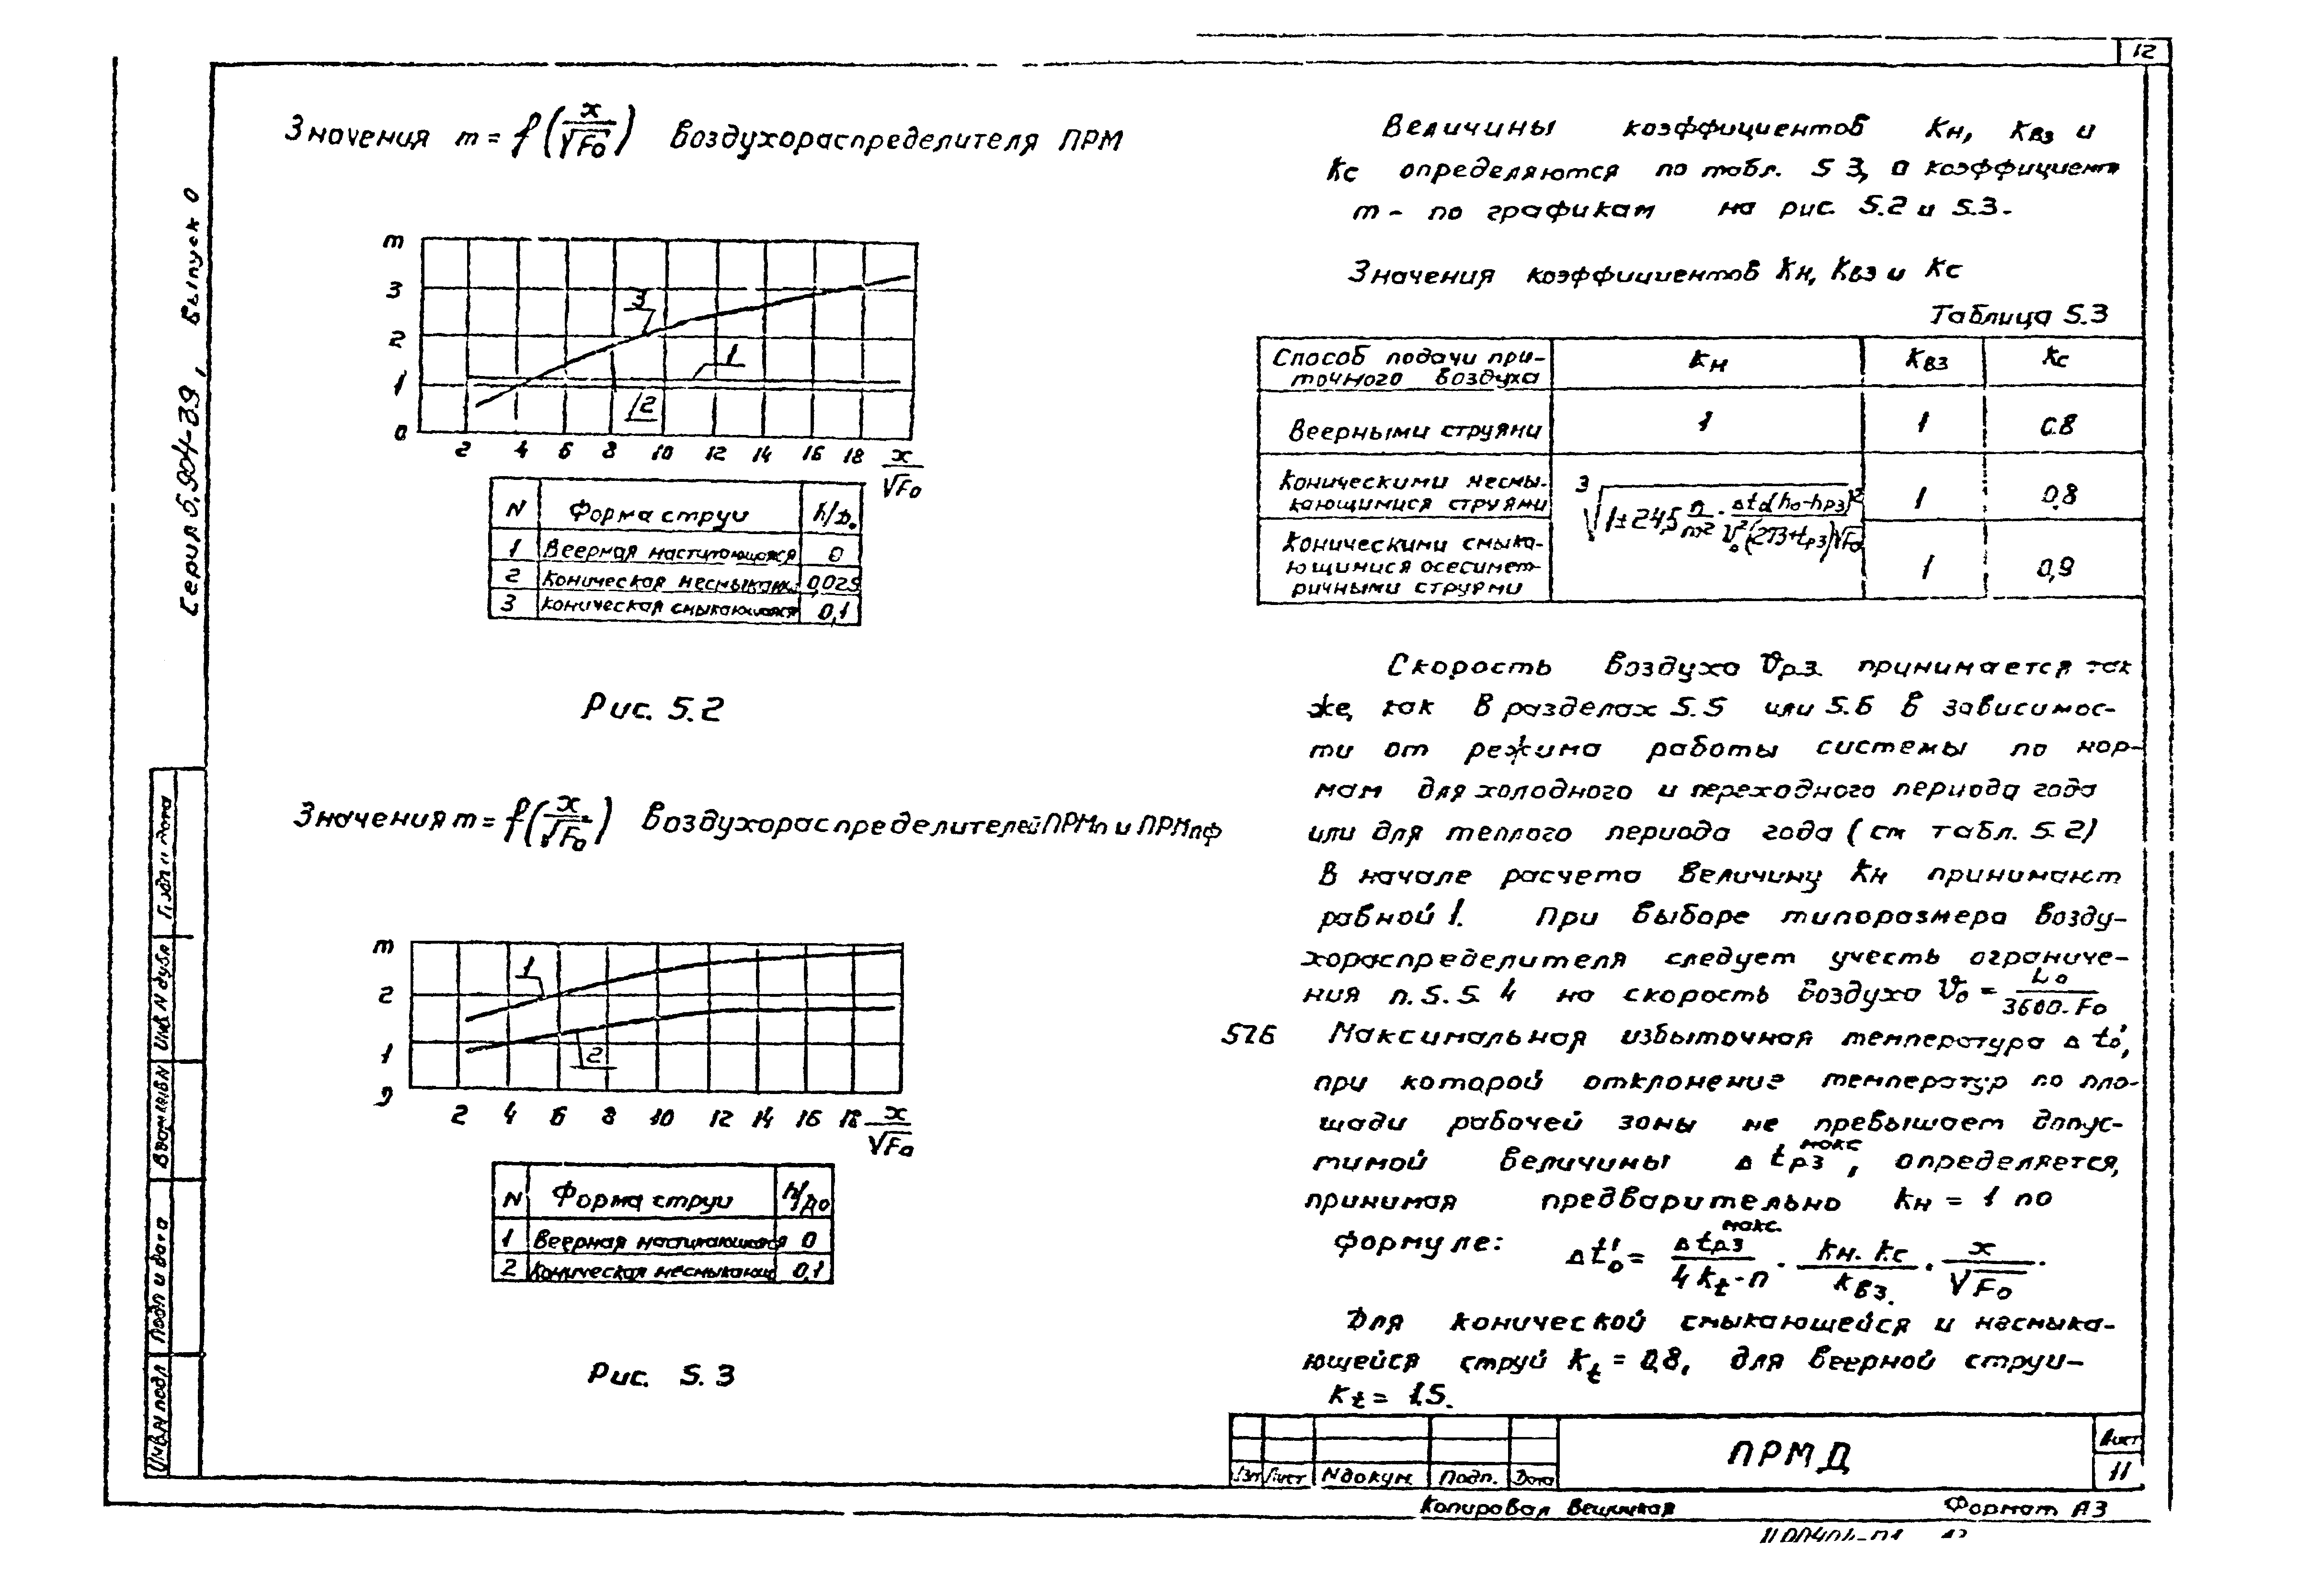 12
Серия 5.904-39, Выпуск 0
Значения m = f(x/√F₀) воздухораспределителя ПРМ
m
3
2
1
0
3
1
2
2 4 6 8 10 12 14 16 18 x/√F₀
N Форма струи h/D₀
1 Веерная настилающаяся 0
2 Коническая несмыкающ 0,025
3 Коническая смыкающаяся 0,1
Рис. 5.2
Значения m = f(x/√F₀) воздухораспределителей ПРМп и ПРМпф
m
2
1
0
1
2
2 4 6 8 10 12 14 16 18 x/√F₀
N Форма струи h/D₀
1 Веерная настилающаяся 0
2 Коническая несмыкающ 0,1
Рис. 5.3
Величины коэффициентов Кн, Квз и
Кс определяются по табл. 5 3, а коэффициент
m - по графикам на рис. 5.2 и 5.3.
Значения коэффициентов Кн, Квз и Кс
Таблица 5.3
Способ подачи при-
точного воздуха
Кн Квз Кс
Веерными струями 1 1 0.8
Коническими несмы-
кающимися струями
1 0,8
Коническими смыка-
ющимися осесимет-
ричными струями
1 0,9
Скорость воздуха υр.з. принимается так
же, как в разделах 5.5 или 5.6 в зависимос-
ти от режима работы системы по нор-
мам для холодного и переходного периода года
или для теплого периода года (см табл. 5.2)
В начале расчета величину Кн принимают
равной 1. При выборе типоразмера возду-
хораспределителя следует учесть ограниче-
ния п.5.5.4 на скорость воздуха υ₀ = L₀/3600·F₀
5.7.6 Максимальная избыточная температура Δt₀',
при которой отклонение температур по пло-
щади рабочей зоны не превышает допус-
тимой величины Δtрз макс, определяется,
принимая предварительно Кн = 1 по
формуле: Δt₀' = Δtрз макс./4Kt·n · Кн·Кс/Квз. · x/√F₀.
Для конической смыкающейся и несмыка-
ющейся струй Kt = 0,8, для веерной струи-
Kt = 1,5.
Инв.N подл Подп и дата Взам инв N Инв N дубл Подп и дата
Изм Лист N докум. Подп. Дата
ПРМД
Лист
11
Копировал
Формат А3